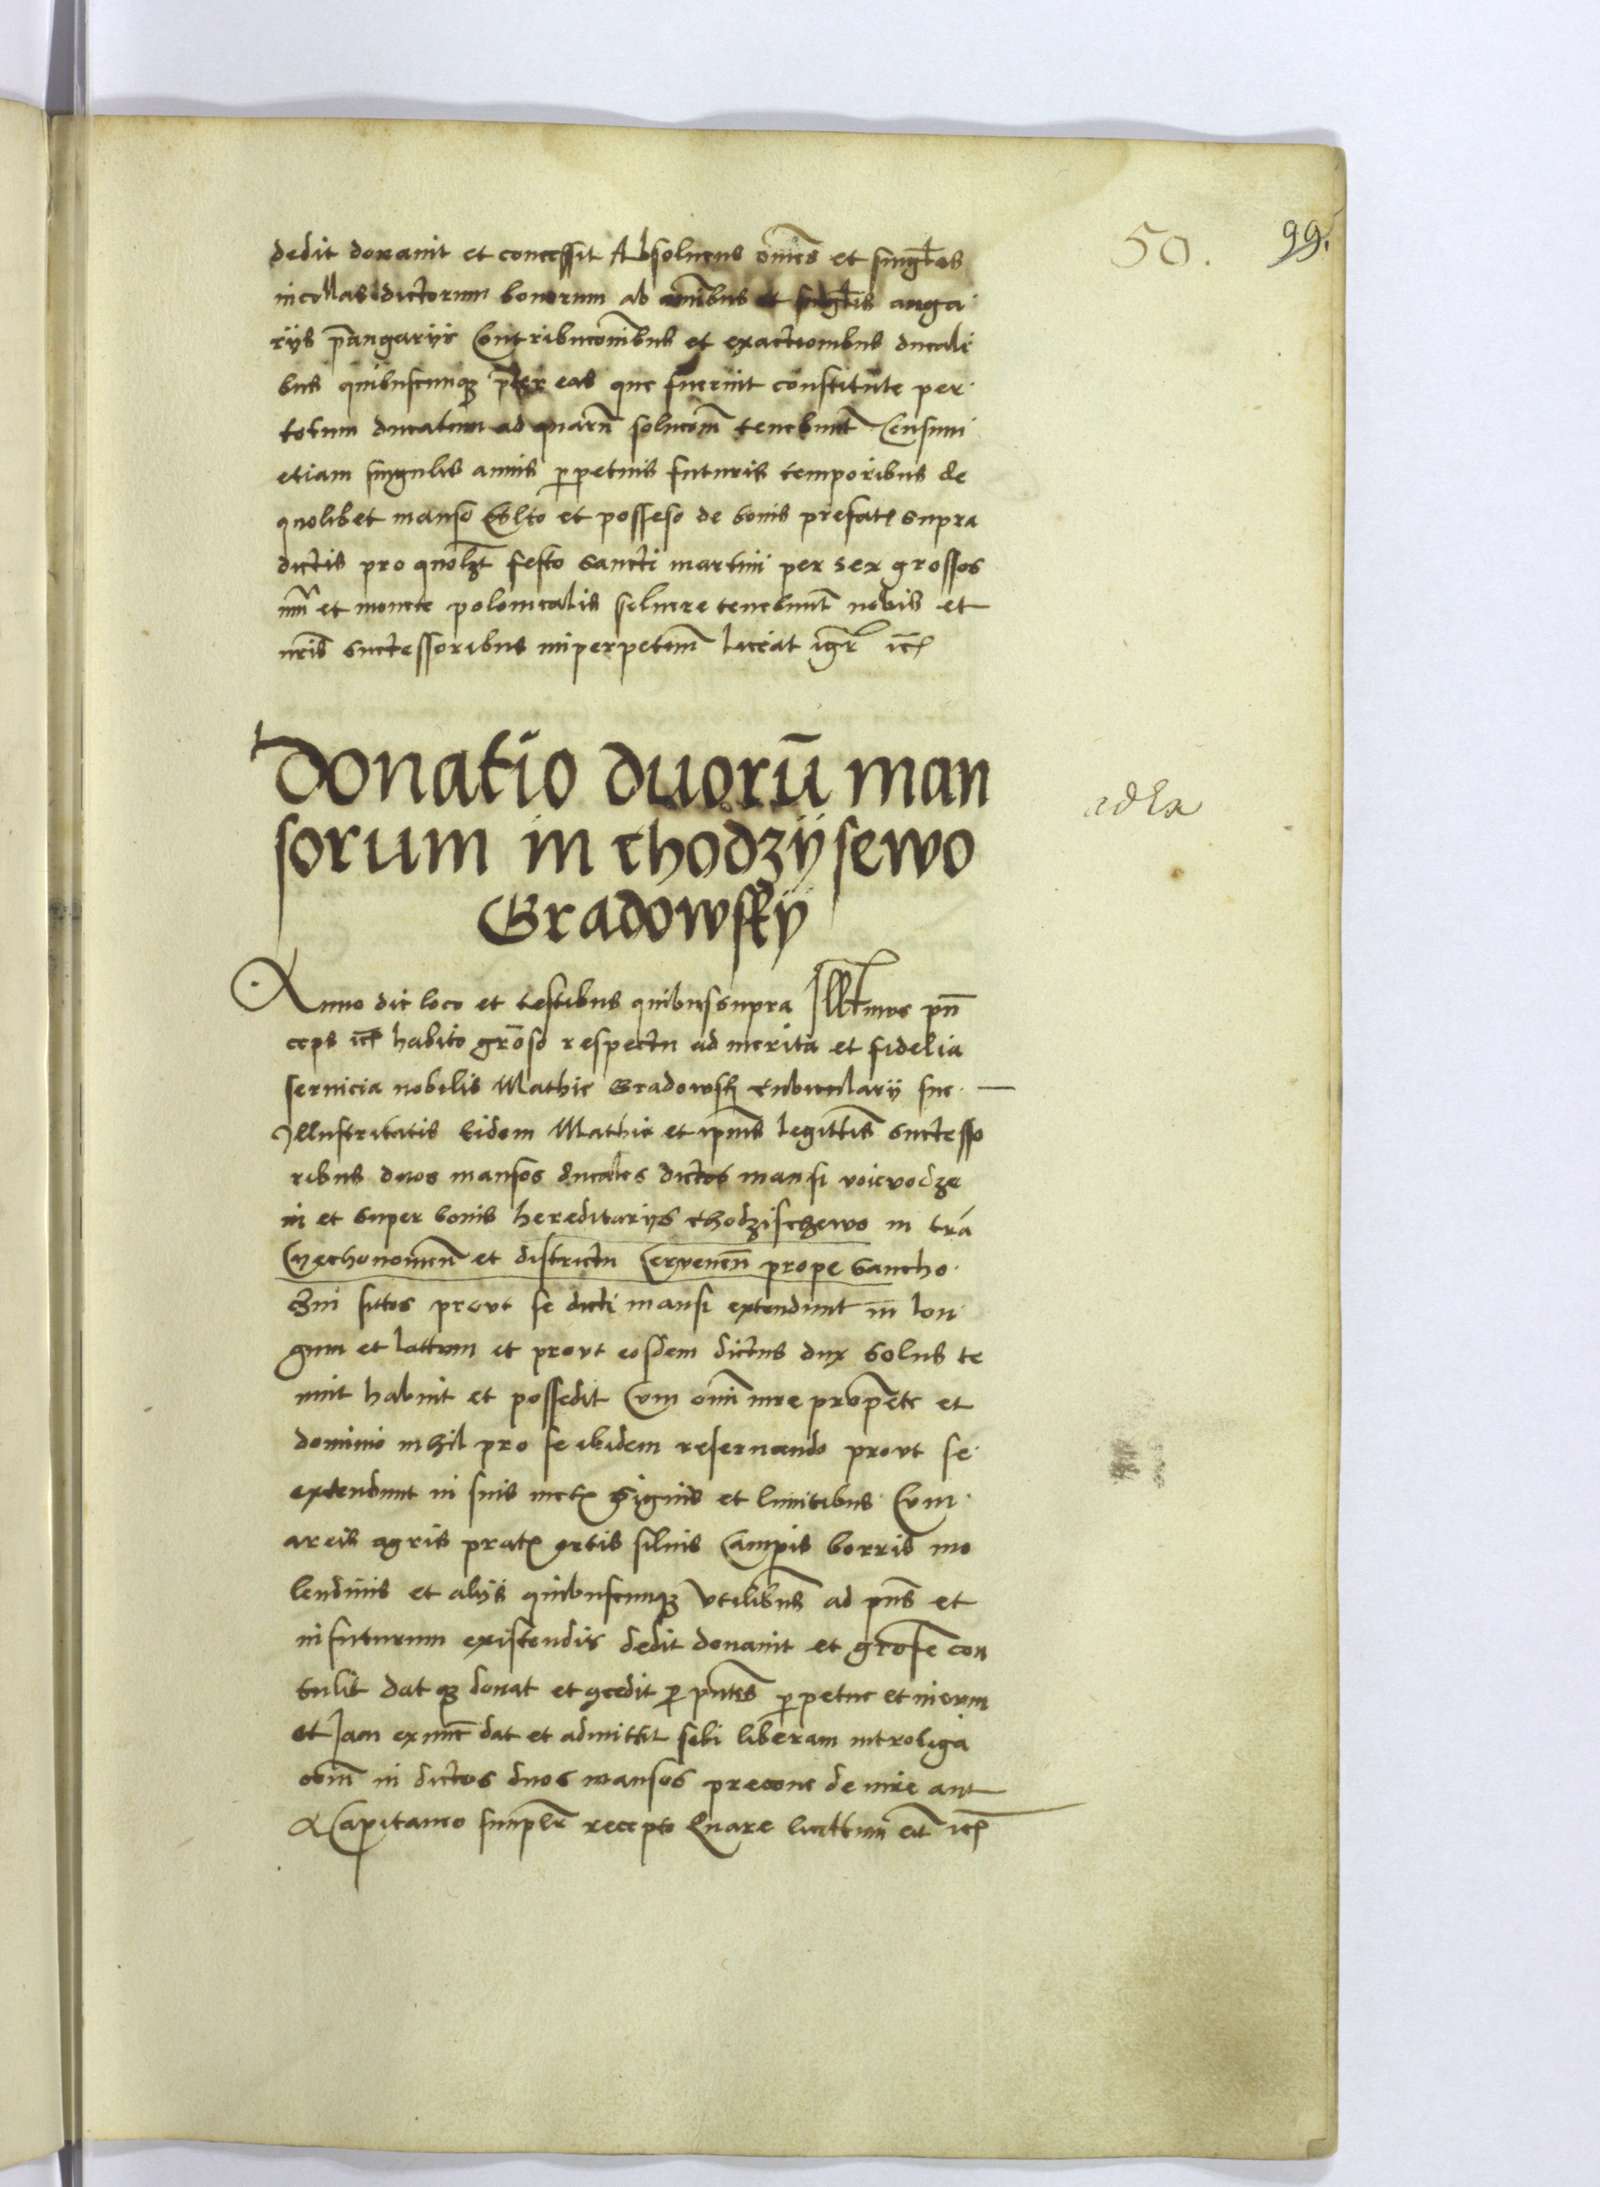 50. 99.
dedit donauit et concessit Absoluens om̄es et singl̄os
incollas dictorum bonorum ab om̄ibus et singl̄is anga
rijs p̄angarijs Contribuconībus et exactionibus ducali
bus quibuscunqꝫ p̄ter eas que fuerint constitute per
totum ducatum ad quar̄n solucōm̄ tenebunt̄ Censum
etiam singulis annis perpetuis futuris temporibus de
quolibet manso et posseso de bonis prefatꝭ supra
dictis pro quolꝫt festo sancti martini per sex grossos
et monete polonicalis soluere tenebunt̄ nobis et
nr̄is successoribus inperpetuum̄ liceat igr̄ ic̄ꝭ
Donatio duorū man
sorum in chodzÿsewo
Gradowskÿ
Anno die loco et testibus quibussupra Illmus prin̄
ceps ic̄ꝭ habito gr̄oso respectu ad merita et fidelia
seruicia nobilis Mathie Gradowsky cubicularij sue
Illustritatis Eidem Mathie et ipius̄ legittīs successo
ribus duos mansos ducales dictos mansi voievodze
in et super bonis hereditarijs chodzischewo in tr̄a
Czechonowien̄ et districtu Cervenen̄ prope sancho
czin sitos provt se dicti mansi extendunt in lon
gum et lattum et provt eosdem dictus dux solus te
nuit habuit et possedit Cum om̄i iure prop̄ete et
dominio nihil pro se ibidem reseruando provt se
extendunt in suis metꝭ Signis et limitibus Cum
areis agris pratꝭ ortis siluis Campis borris mo
lendinis et alijs quibuscunqꝫ vtilibus̄ ad pn̄s et
in futurum existendis dedit donauit et grose con
tulit dat qꝫ donat et ꝯcedit per pn̄tes perpetue et in evum
et Jam ex nunc dat et admittit sibi liberam introliga
coīm̄ in dictos duos mansos precone de iure aut
a Capitaneo simplr̄ recepto Quare licittum est ic̄ꝭ